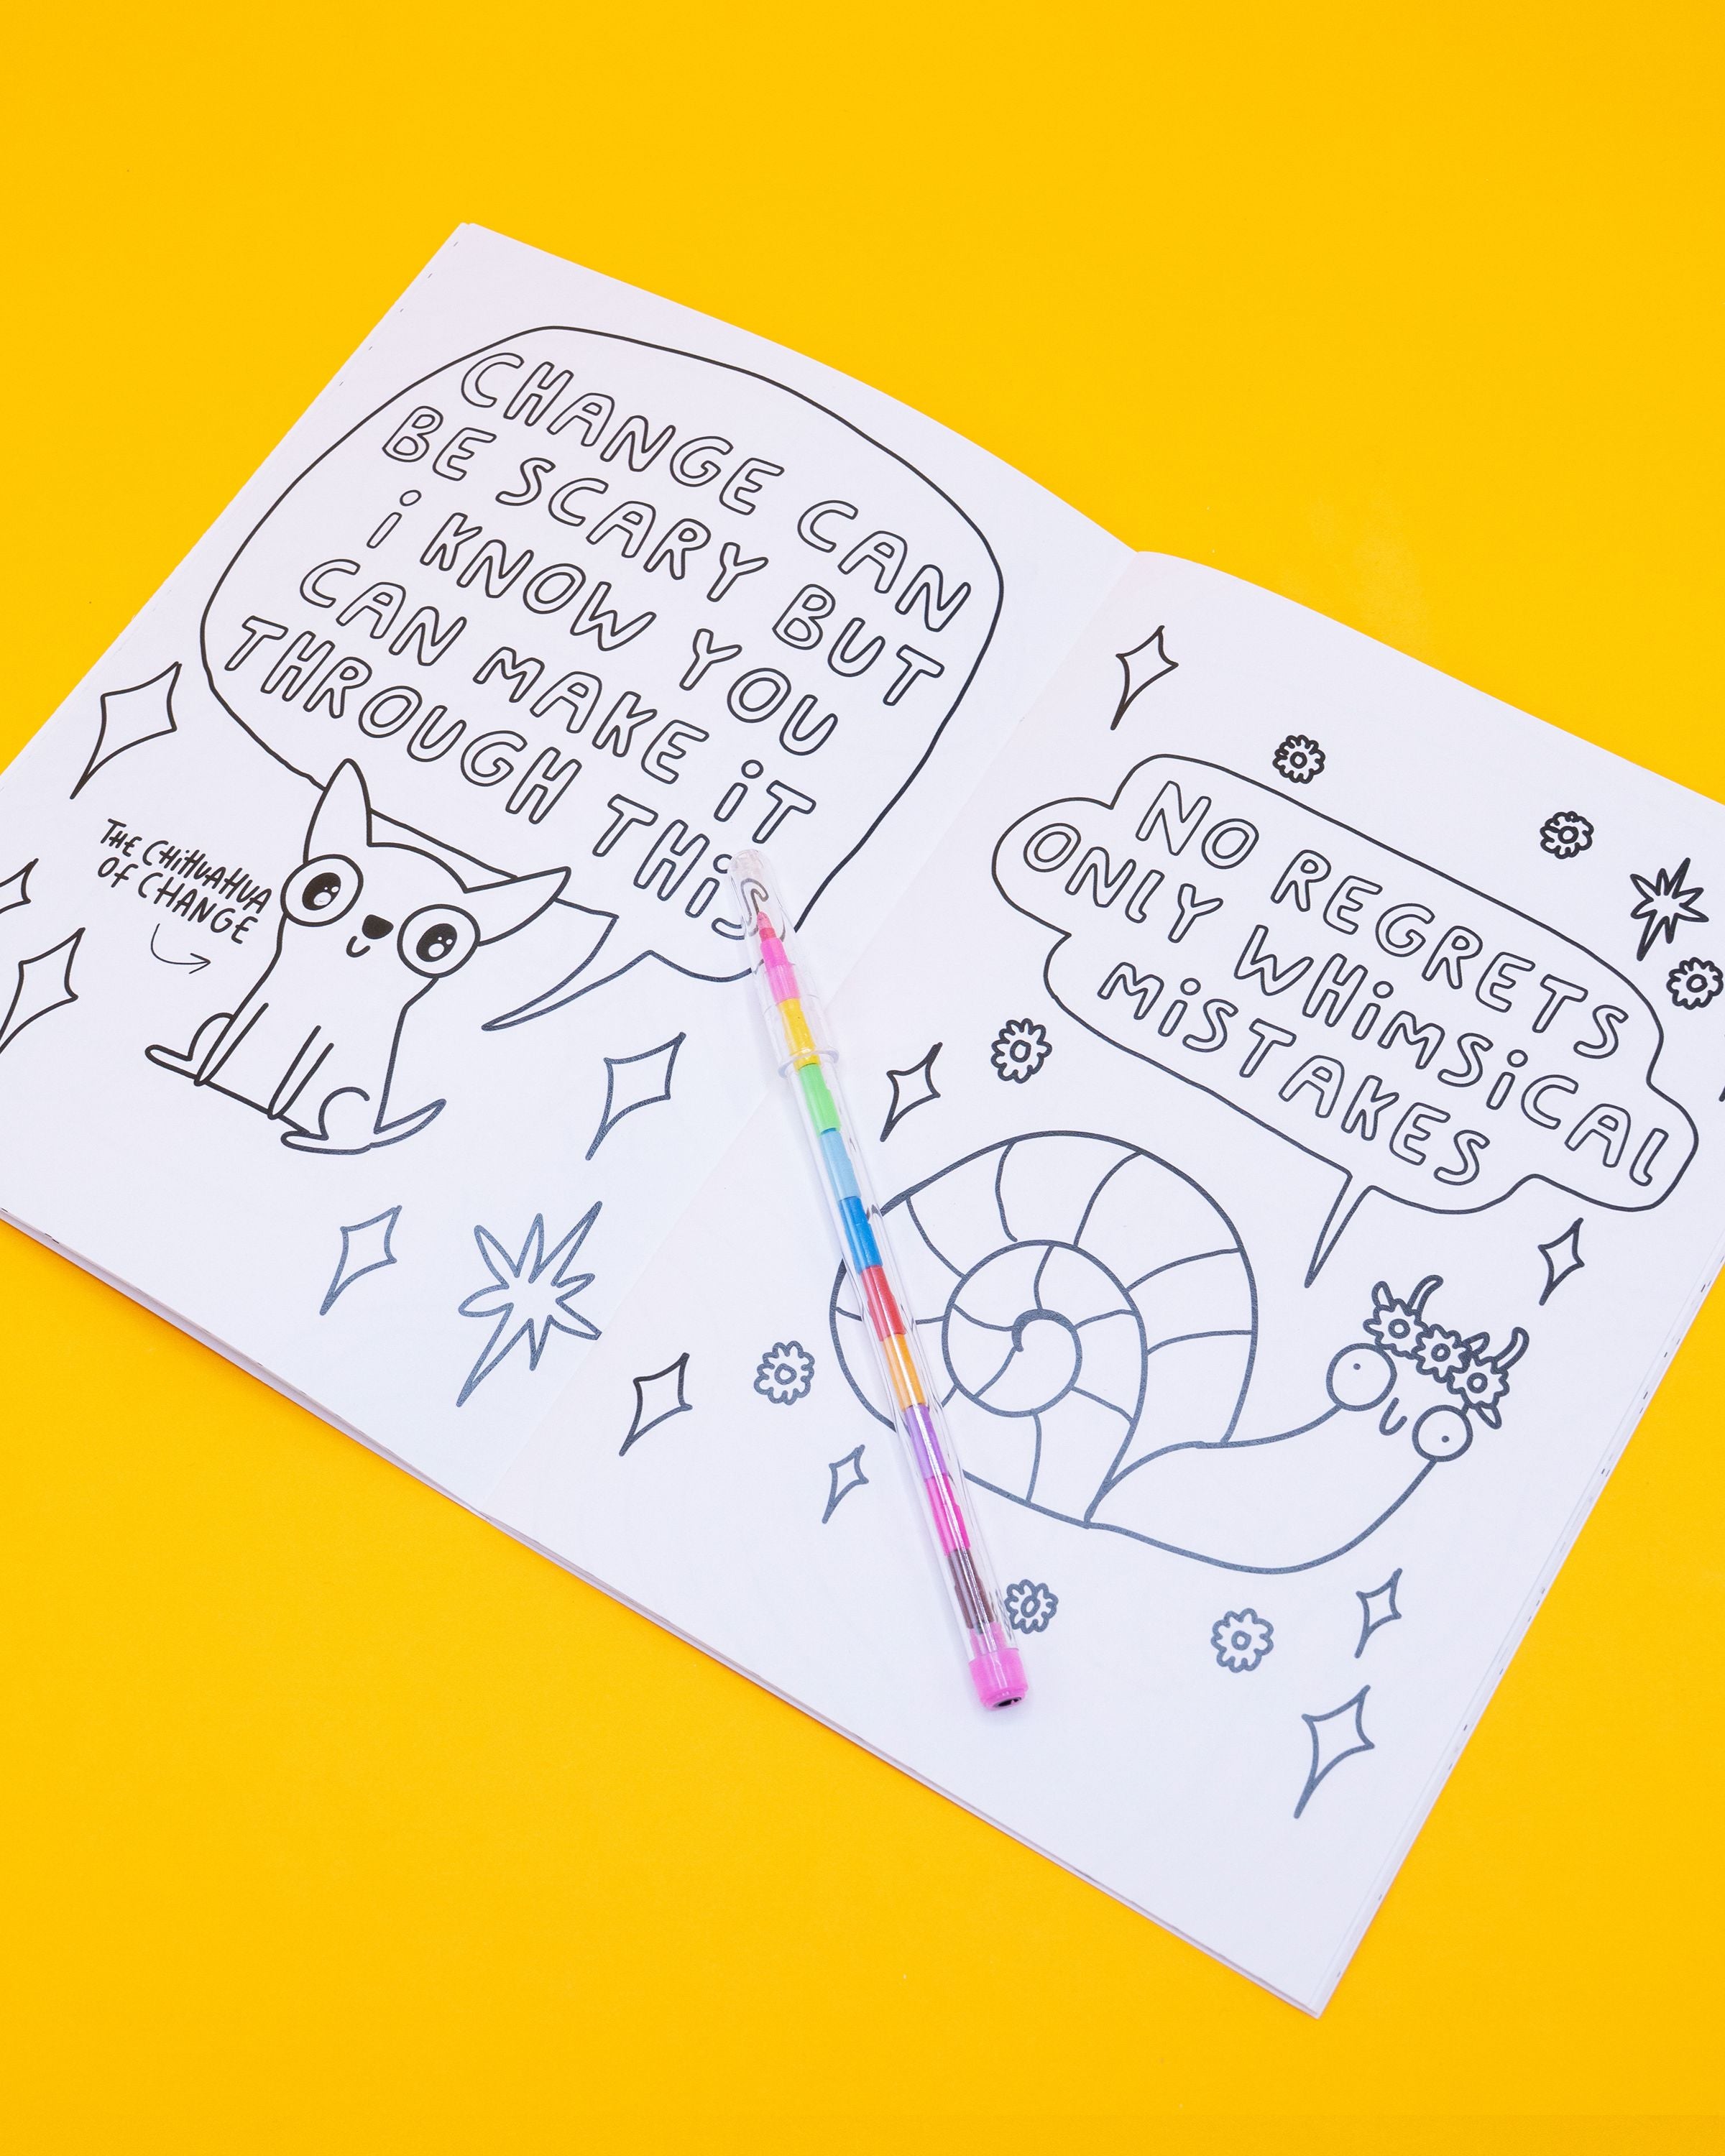 CHANGE CAN
BE SCARY BUT
i KNOW YOU
CAN MAKE iT
THROUGH THiS
THE CHiHUAHUA
OF CHANGE
NO REGRETS
ONLY WHiMSiCAL
MiSTAKES